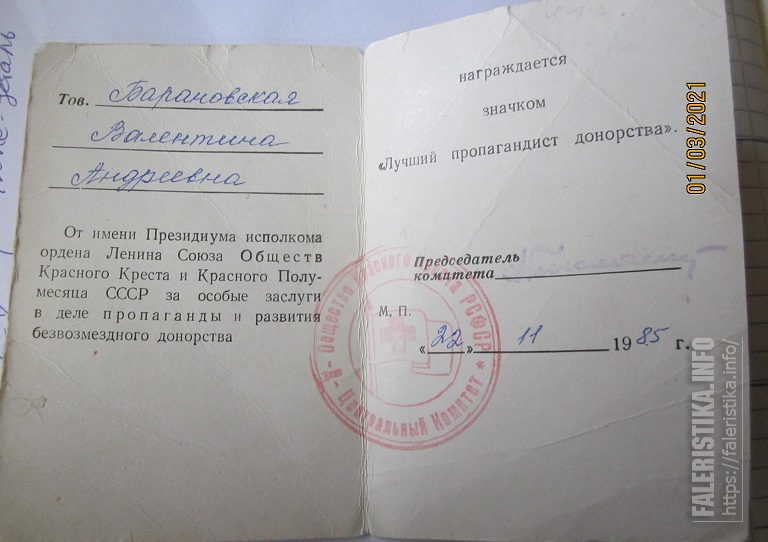 Тов. Барановская
Валентина
Андреевна
От имени Президиума исполкома
ордена Ленина Союза Обществ
Красного Креста и Красного Полу-
месяца СССР за особые заслуги
в деле пропаганды и развития
безвозмездного донорства
награждается
значком
«Лучший пропагандист донорства».
Председатель
комитета
М. П.
«22» 11 1985 г.
Общество Красного Креста РСФСР
Центральный Комитет
01/03/2021
FALERISTIKA.INFO
https://faleristika.info/